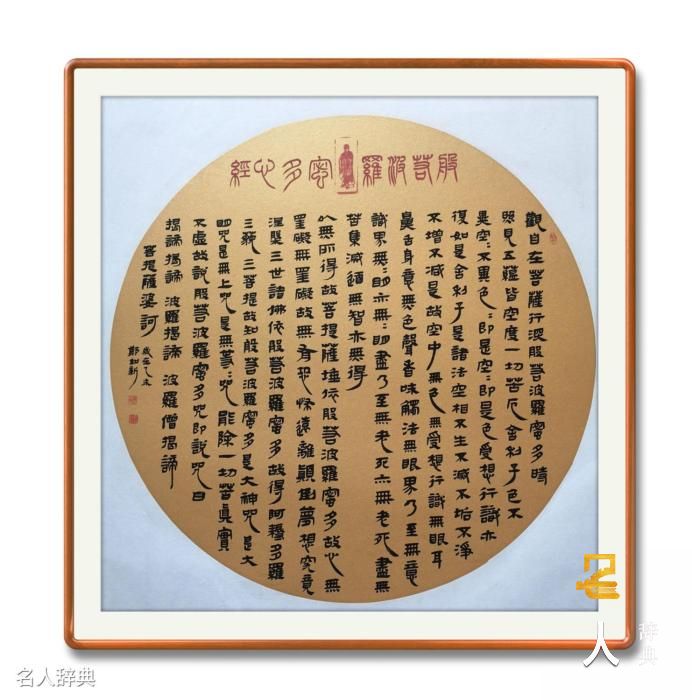 般若波羅蜜多心經
觀自在菩薩行深般若波羅蜜多時
照見五蘊皆空度一切苦厄舍利子色不
異空〻不異色〻即是空〻即是色受想行識亦
復如是舍利子是諸法空相不生不滅不垢不淨
不增不減是故空中無色無受想行識無眼耳
鼻舌身意無色聲香味觸法無眼界乃至無意
識界無〻明亦無〻明盡乃至無老死亦無老死盡無
苦集滅道無智亦無得
以無所得故菩提薩埵依般若波羅蜜多故心無
罣礙無罣礙故無有恐怖遠離顛倒夢想究竟
涅槃三世諸佛依般若波羅蜜多故得阿耨多羅
三藐三菩提故知般若波羅蜜多是大神咒是大
明咒是無上咒是無等〻咒能除一切苦真實
不虛故說般若波羅蜜多咒即說咒曰
揭諦揭諦 波羅揭諦 波羅僧揭諦
菩提薩婆訶
歲在乙未
鄭如新
名人辞典
名人辞典